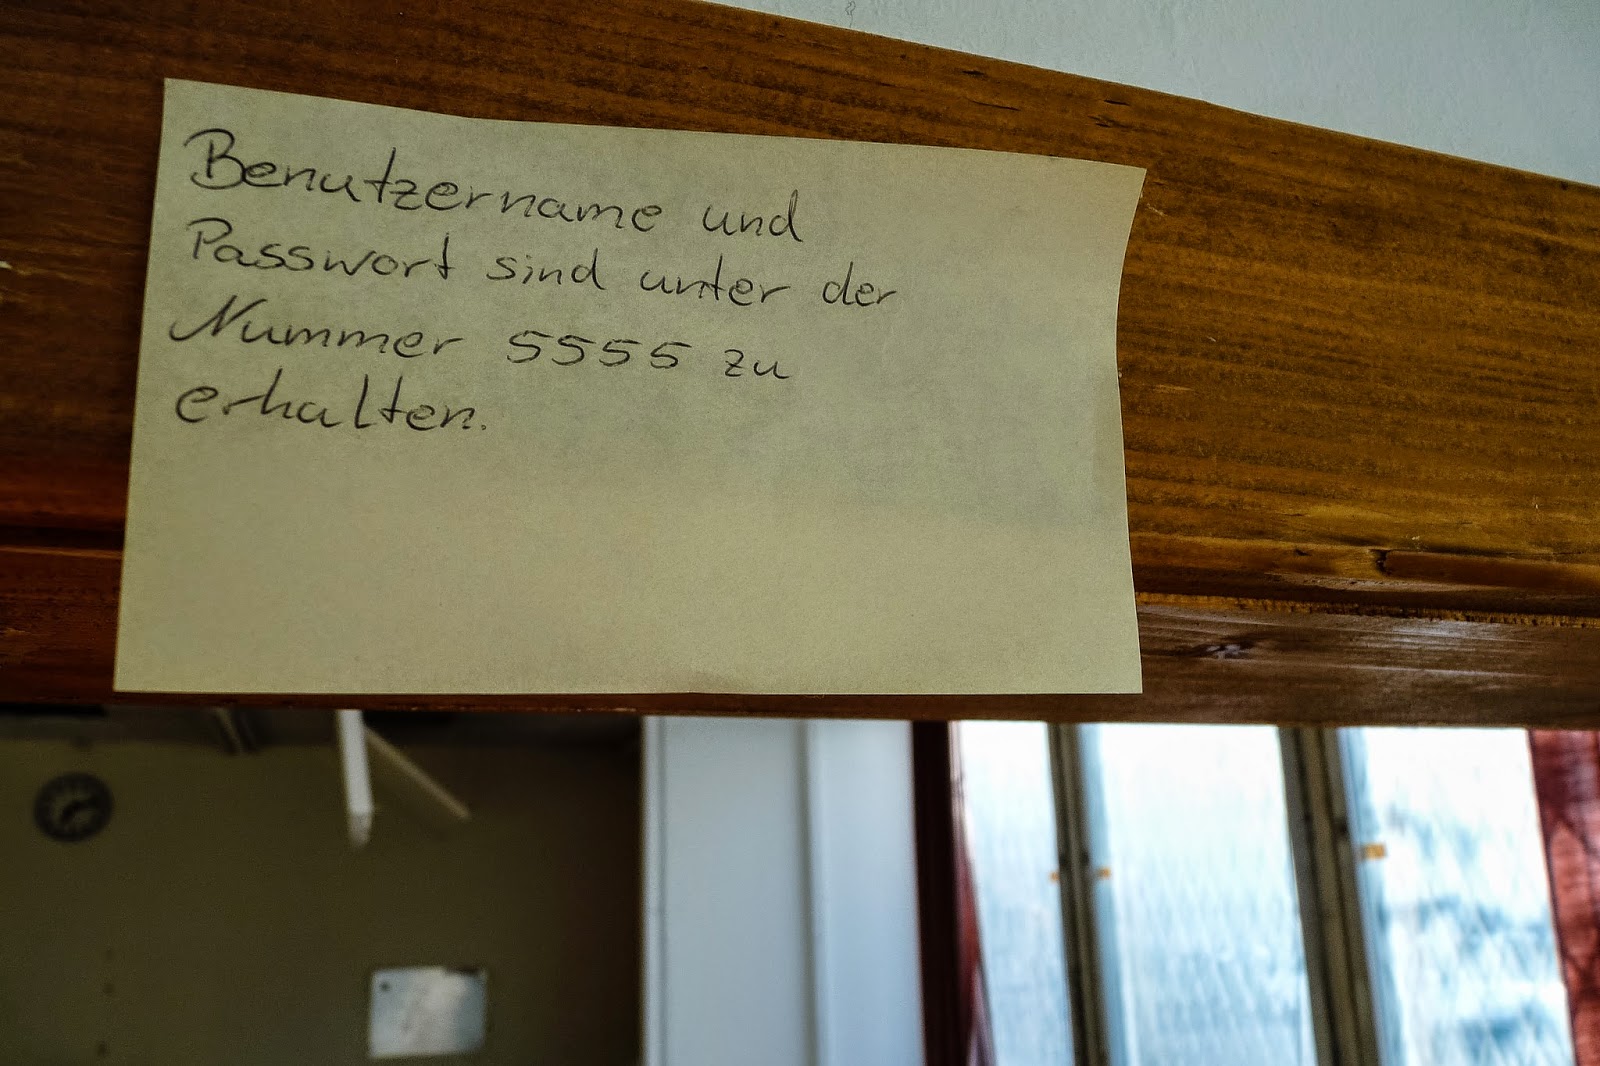 Benutzername und
Passwort sind unter der
Nummer 5555 zu
erhalten.